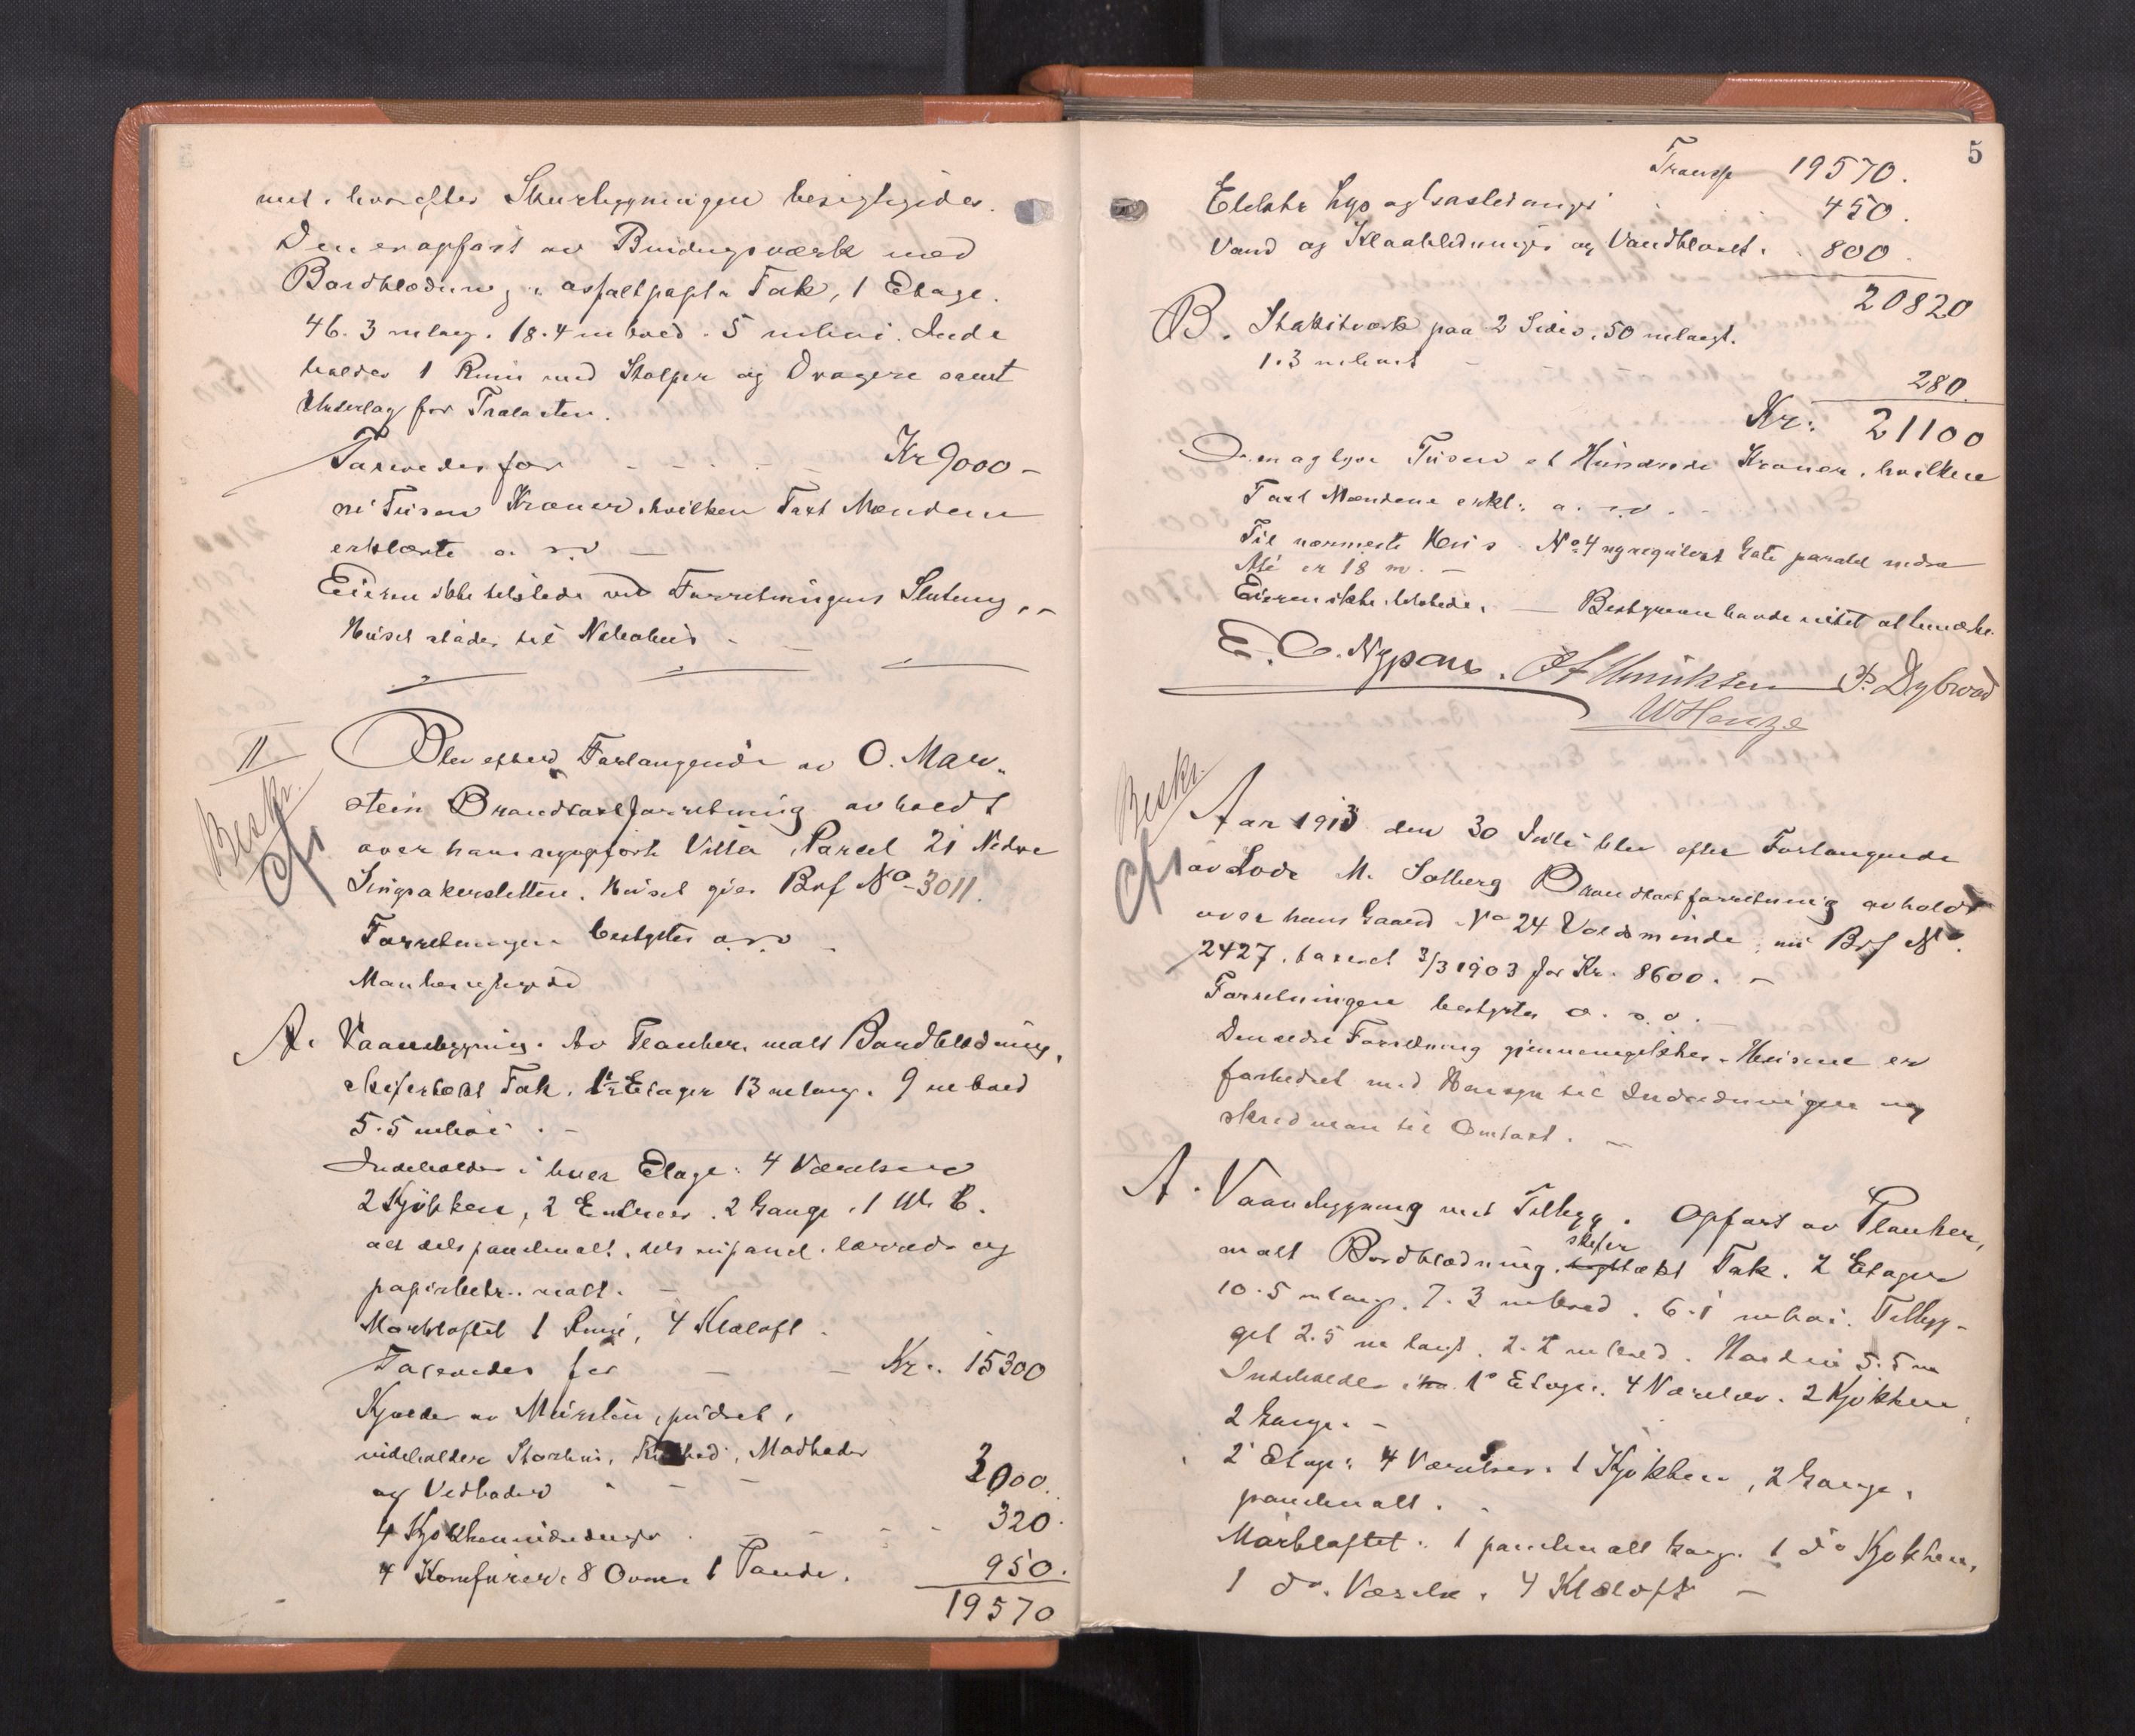 hvorefter Skurbygningen besigtigedes.
Den er opført av Bindingsværk med
Bordklædning, asfaltpapp Tak, 1 Etage.
46.3 m lang. 18.4 m bred. 5 m høi. Inde
holder 1 Rum med Stolper og Dragere samt
Underlag for Trælasten.
Taxeredes for - - - - Kr 9000 -
ni Tusen Kroner, hvilken Taxt Mændene
erklærte o. s. v —
Eieren ikke tilstede ved Forretningens Slutning. -
Huset støder til Nabohus -
II
Beskr.
Blev efter Forlangende av O. Mar-
stein Brandtaxtforretning avholdt
over hans nyopførte Villa, Parcel 21 Nedre
Singsakersletten. Huset gives Brf No 3011.
Forretningen bestyrtes o.s.v -
Man besigtigede
A. Vaaningsbygning. Av Planker, malt Bordklædning,
skifertækt Tak. 1½ Etager 13 m lang. 9 m bred
5.5 m høi. -
Indeholder i hver Etage: 4 Værelser
2 Kjøkken, 2 Entreer. 2 Gange, 1 W. C.
alt dels panelmalt, dels upanel. lærreds og
papirbetr. malt. -
Mørkloftet 1 Rum, 4 Klæloft -
Taxeredes for — — Kr. 15300
Kjælder av Mursten, pudset,
indeholder Storhus, Madboder
og Vedboder - - - 3000.
4 Kjøkkenindredninger - - - 320.
4 Komfurer. 8 Ovne. 1 Pande. 950.
19570
5
Transp 19570.
Elektr Lys og Gasledninger 450.
Vand og Kloakledninger og Vandkloset. 800.
20820
B. Stakitværk paa 2 Sider. 50 m langt.
1.3 m høit - 280.
Kr: 21100
En og tyve Tusen et Hundrede Kroner, hvilken
Taxt Mændene erkl. o. s. v. -
Til nærmeste Hus No 4 nyreguleret Gate paralel nedre
Allé er 18 m. -
Eieren ikke tilstede. — Bestyreren havde intet at bemærke.
E. O. Nypan. O F Hinriksen P. Dybwad
W Henze
Beskr.
Aar 1913 den 30 Juli blev efter Forlangende
av Lods M. Solberg Brandtaxtforretning avholdt
over hans Gaard No 24 Voldsminde, nu Brf No
2427, taxeret 3/3 1903 for Kr. 8600. -
Forretningen bestyrtes o. s. v. -
Den ældre Forretning gjennemgikkes. Husene er
forbedret med Hensyn til Indredningen og
skred man til Omtaxt. -
A. Vaaningsbygning med Tilbygg. Opført av Planker,
malt Bordklædning, skifertækt Tak. 2 Etager
10.5 m lang. 7.3 m bred. 6.1 m høi. Tilbyg-
get 2.5 m langt. 2.2 m bred. Høiden 5.5 m
Indeholder 1' Etage. 4 Værelser. 2 Kjøkken,
2 Gange. -
2' Etage: 4 Værelser. 1 Kjøkken, 2 Gange,
panelmalt. -
Mørkloftet: 1 panelmalt Gang. 1 do Kjøkken,
1 do. Værelse. 4 Klæloft -